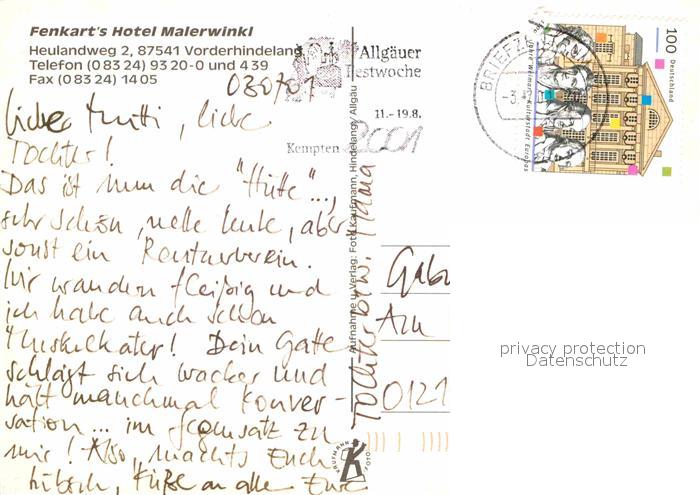 Fenkart's Hotel Malerwinkl
Heulandweg 2, 87541 Vorderhindelang
Telefon (0 83 24) 93 20-0 und 4 39
Fax (0 83 24) 14 05
030701
Liebe Mutti, liebe
Tochter!
Das ist nun die "Hütte"...,
sehr schön, nette Leute, aber
sonst ein Rentnerverein.
Wir wandern fleißig und
ich habe auch schon
Muskelkater! Dein Gatte
schlägt sich wacker und
hält manchmal Konver-
sation... im Gegensatz zu
mir! Also, machts Euch
hübsch, Küße an alle Eure
Tochter bzw. Mama
Allgäuer
Festwoche
11.-19.8.
Kempten 2001
Aufnahme u. Verlag: Foto Kaufmann, Hindelang/Allgäu
KAUFMANN FOTO
BRIEFZENTRUM
-3.
100 Deutschland
Weimar - Kulturstadt Europas
Gab
Am
0121
privacy protection
Datenschutz